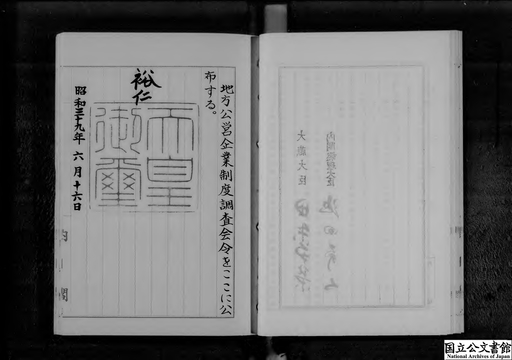 内閣総理大臣 池田勇人
大蔵大臣 田中角栄
地方公営企業制度調査会令をここに公
布する。
裕仁
天皇
御璽
昭和三十九年 六月十六日
内閣
国立公文書館
National Archives of Japan